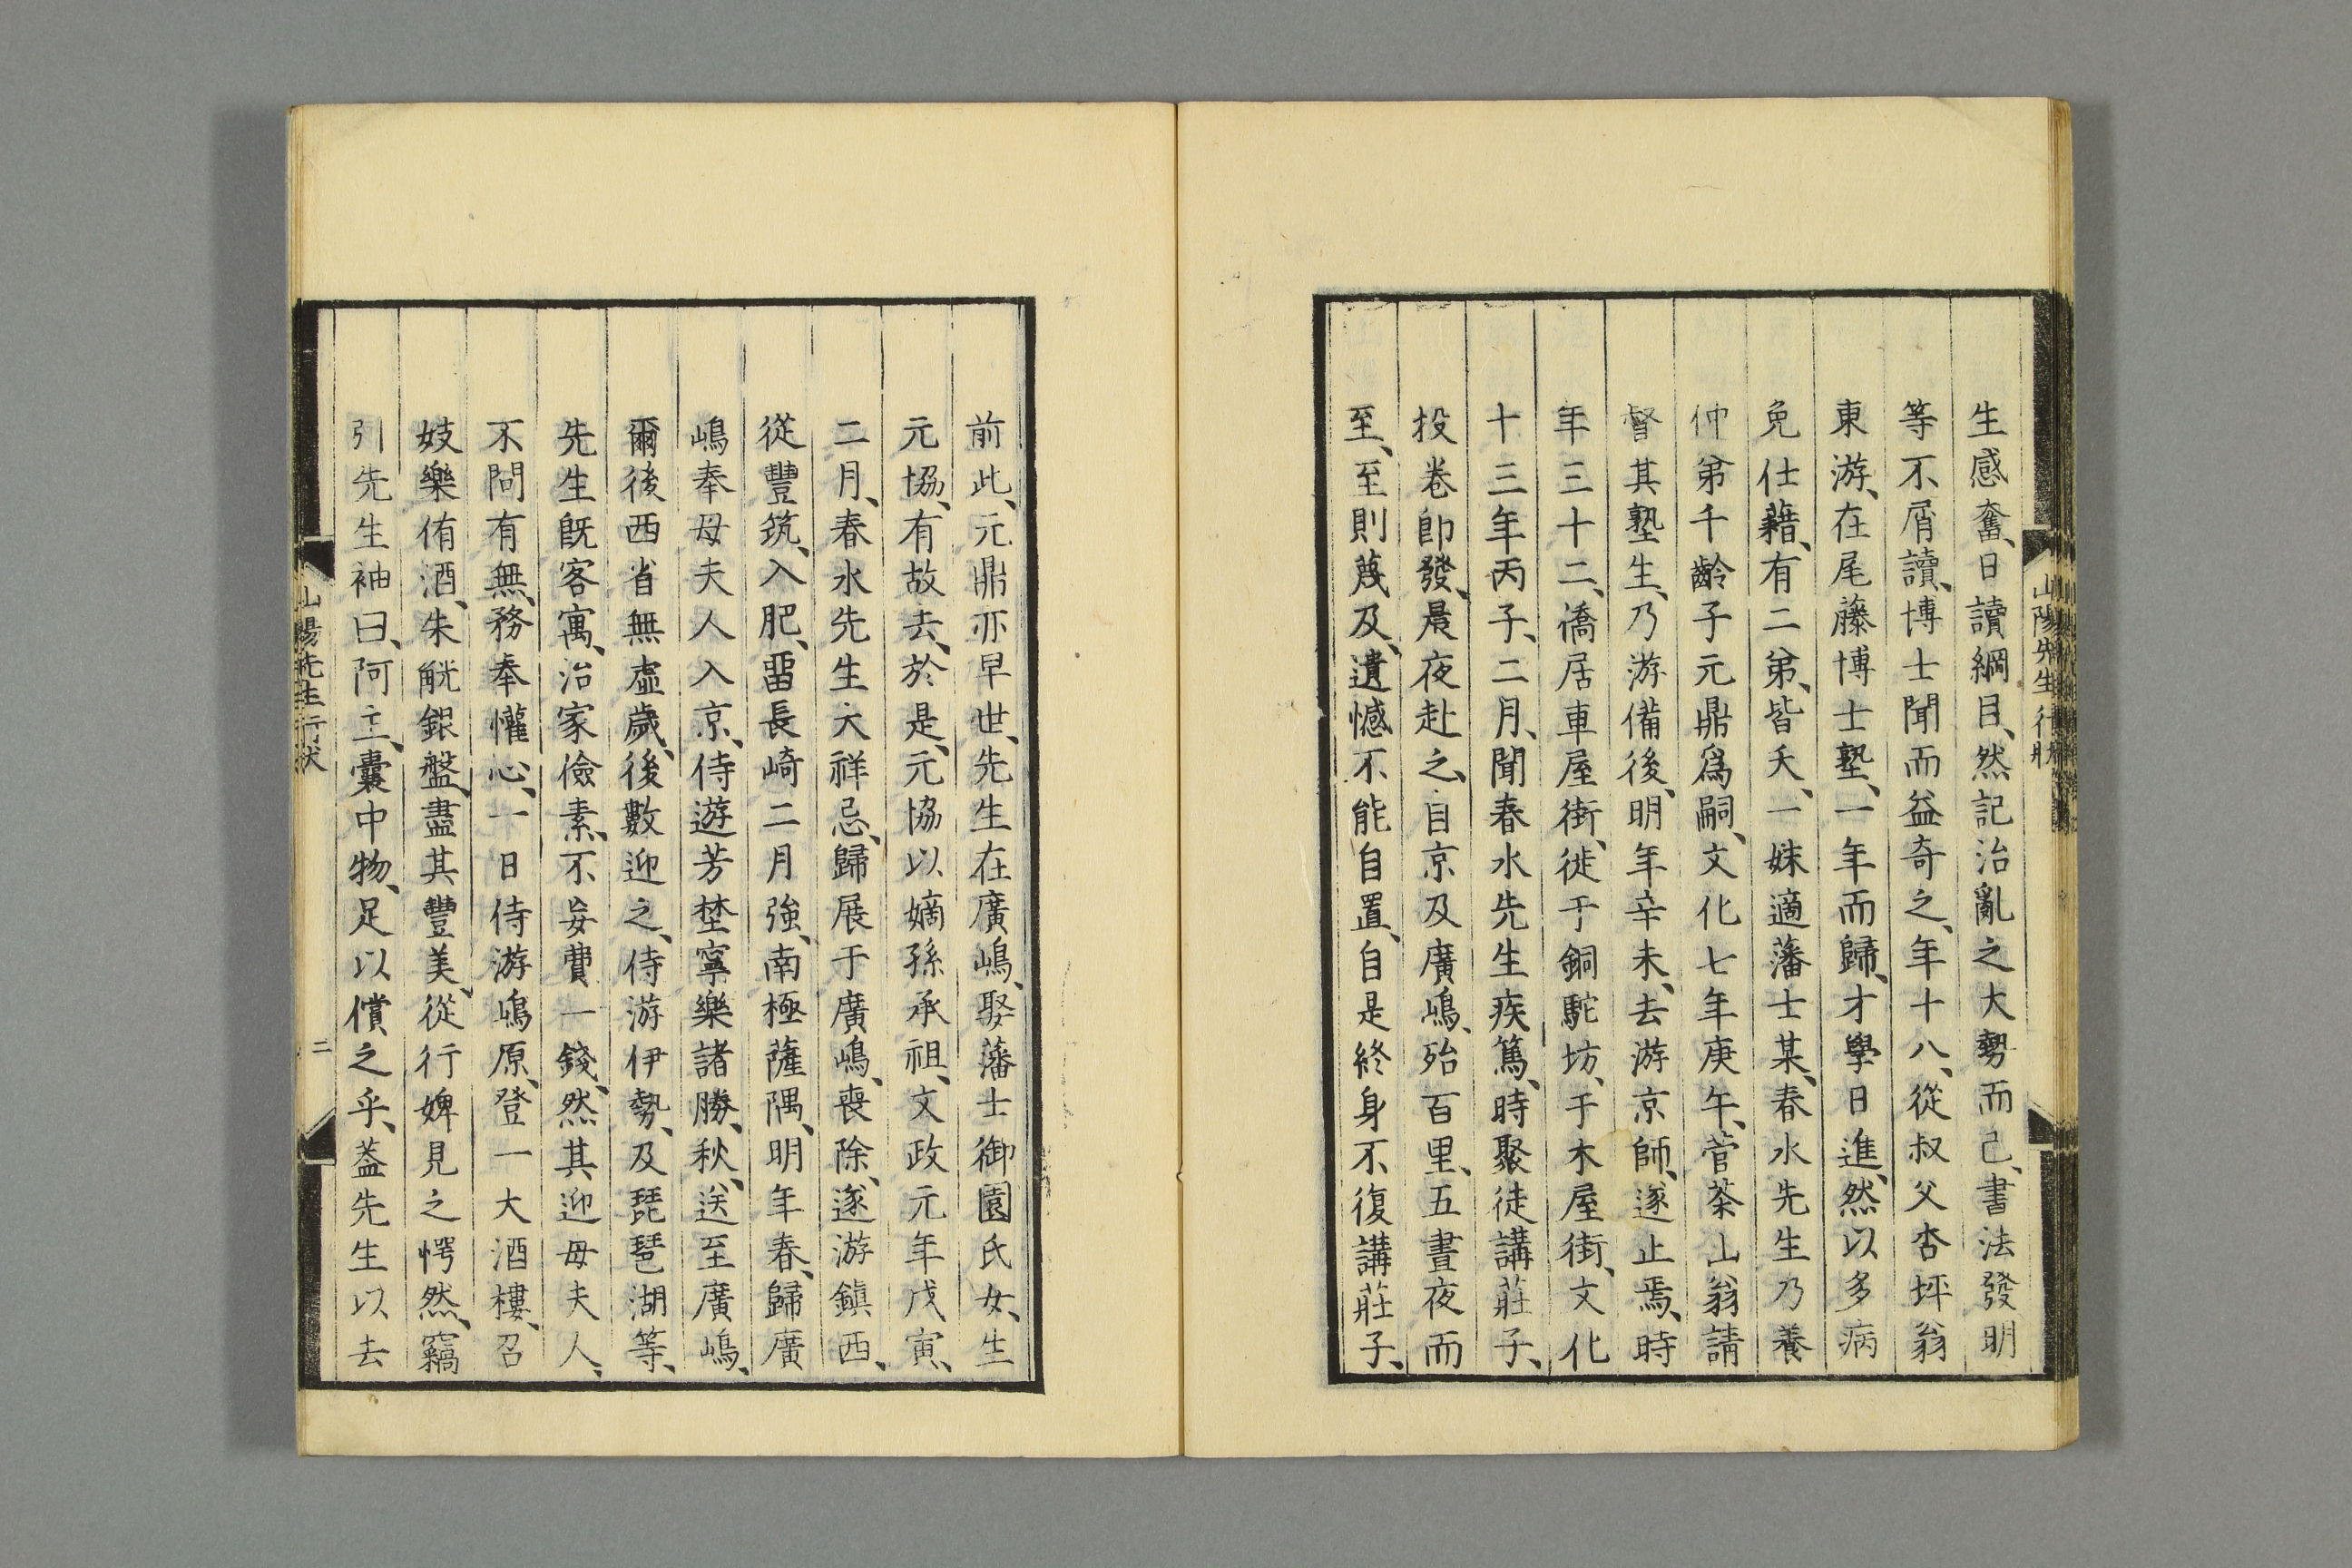 山陽先生行狀
生感奮、日讀綱目、然記治亂之大勢而已、書法發明
等不屑讀、博士聞而益奇之、年十八、從叔父杏坪翁
東游、在尾藤博士塾、一年而歸、才學日進、然以多病
免仕藉、有二弟、皆夭、一妹適藩士某、春水先生乃養
仲弟千齡子元鼎爲嗣、文化七年庚午、菅茶山翁請
督其塾生、乃游備後、明年辛未、去游京師、遂止焉、時
年三十二、僑居車屋街、徙于銅駝坊、于木屋街、文化
十三年丙子、二月、聞春水先生疾篤、時聚徒講莊子、
投卷卽發、晨夜赴之、自京及廣嶋、殆百里、五晝夜而
至、至則蔑及、遺憾不能自置、自是終身不復講莊子、
前此、元鼎亦早世、先生在廣嶋、娶藩士御園氏女、生
元協、有故去、於是、元協以嫡孫承祖、文政元年戊寅、
二月、春水先生大祥忌、歸展于廣嶋、喪除、遂游鎭西、
從豐筑、入肥、畱長崎二月強、南極薩隅、明年春、歸廣
嶋奉母夫人入京、侍遊芳埜寧樂諸勝、秋、送至廣嶋、
爾後西省無虛歲、後數迎之、侍游伊勢、及琵琶湖等、
先生旣客寓、治家儉素、不妄費一錢、然其迎母夫人、
不問有無、務奉懽心、一日侍游嶋原、登一大酒樓、召
妓樂侑酒、朱觥銀盤、盡其豐美、從行婢見之愕然、竊
引先生袖曰、阿主、囊中物、足以償之乎、葢先生以去
山陽先生行狀
二